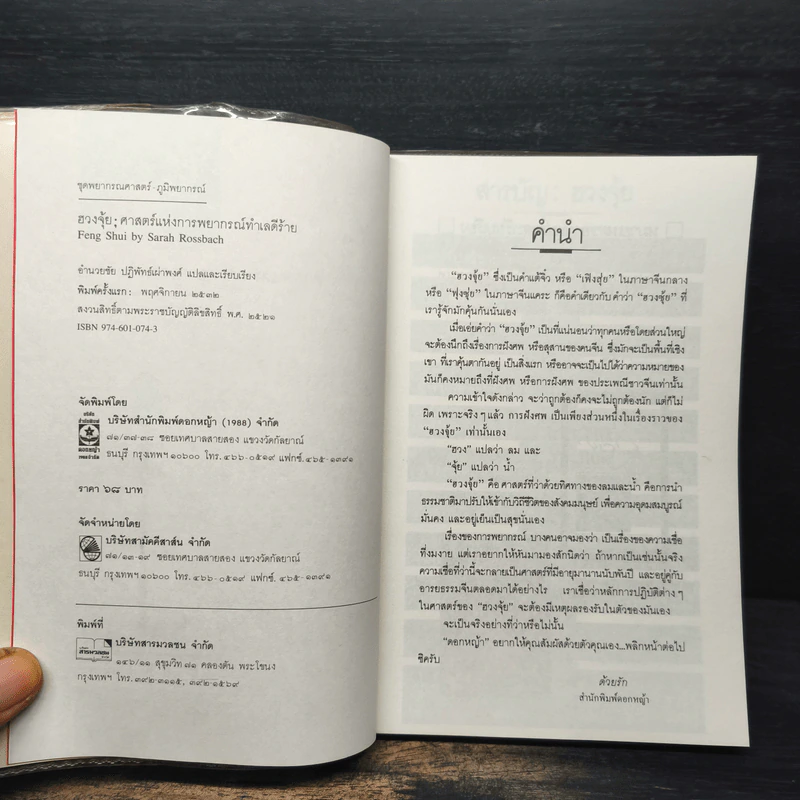 ชุดพยากรณศาสตร์-ภูมิพยากรณ์
ฮวงจุ้ย; ศาสตร์แห่งการพยากรณ์ทำเลดีร้าย
Feng Shui by Sarah Rossbach
อำนวยชัย ปฏิพัทธ์เผ่าพงศ์ แปลและเรียบเรียง
พิมพ์ครั้งแรก : พฤศจิกายน ๒๕๓๒
สงวนสิทธิ์ตามพระราชบัญญัติลิขสิทธิ์ พ.ศ. ๒๕๒๑
ISBN 974-601-074-3
จัดพิมพ์โดย
บริษัทสำนักพิมพ์ดอกหญ้า (1988) จำกัด
๗๑/๓๗-๓๘ ซอยเทศบาลสายสอง แขวงวัดกัลยาณ์
ธนบุรี กรุงเทพฯ ๑๐๖๐๐ โทร. ๔๖๖-๐๕๑๙ แฟกซ์. ๔๖๕-๑๓๙๑
ราคา ๖๘ บาท
จัดจำหน่ายโดย
บริษัทสามัคคีสาส์น จำกัด
๗๑/๑๓-๑๙ ซอยเทศบาลสายสอง แขวงวัดกัลยาณ์
ธนบุรี กรุงเทพฯ ๑๐๖๐๐ โทร. ๔๖๖-๐๕๑๙ แฟกซ์. ๔๖๕-๑๓๙๑
พิมพ์ที่
บริษัทสารมวลชน จำกัด
๑๔๖/๑๑ สุขุมวิท ๗๑ คลองตัน พระโขนง
กรุงเทพฯ โทร. ๓๙๒-๓๑๑๕, ๓๙๒-๑๕๖๙
คำนำ
"ฮวงจุ้ย" ซึ่งเป็นคำแต้จิ๋ว หรือ "เฟิงสุ่ย" ในภาษาจีนกลาง
หรือ "ฟุงซุ่ย" ในภาษาจีนแคระ ก็คือคำเดียวกับ คำว่า "ฮวงซุ้ย" ที่
เรารู้จักมักคุ้นกันนั่นเอง
เมื่อเอ่ยคำว่า "ฮวงจุ้ย" เป็นที่แน่นอนว่าทุกคนหรือโดยส่วนใหญ่
จะต้องนึกถึงเรื่องการฝังศพ หรือสุสานของคนจีน ซึ่งมักจะเป็นพื้นที่เชิง
เขา ที่เราคุ้นตากันอยู่ เป็นสิ่งแรก หรืออาจจะเป็นไปได้ว่าความหมายของ
มันก็คงหมายถึงที่ฝังศพ หรือการฝังศพ ของประเพณีชาวจีนเท่านั้น
ความเข้าใจดังกล่าว จะว่าถูกต้องก็คงจะไม่ถูกต้องนัก แต่ก็ไม่
ผิด เพราะจริงๆแล้ว การฝังศพ เป็นเพียงส่วนหนึ่งในเรื่องราวของ
"ฮวงจุ้ย" เท่านั้นเอง
"ฮวง" แปลว่า ลม และ
"จุ้ย" แปลว่า น้ำ
"ฮวงจุ้ย" คือ ศาสตร์ที่ว่าด้วยทิศทางของลมและน้ำ คือการนำ
ธรรมชาติมาปรับให้เข้ากับวิถีชีวิตของสังคมมนุษย์ เพื่อความอุดมสมบูรณ์
มั่นคง และอยู่เย็นเป็นสุขนั่นเอง
เรื่องของการพยากรณ์ บางคนอาจมองว่า เป็นเรื่องของความเชื่อ
ที่งมงาย แต่เราอยากให้หันมามองสักนิดว่า ถ้าหากเป็นเช่นนั้นจริง
ความเชื่อที่ว่านี้จะกลายเป็นศาสตร์ที่มีอายุมานานนับพันปี และอยู่คู่กับ
อารยธรรมจีนตลอดมาได้อย่างไร เราเชื่อว่าหลักการปฏิบัติต่างๆ
ในศาสตร์ของ "ฮวงจุ้ย" จะต้องมีเหตุผลรองรับในตัวของมันเอง
จะเป็นจริงอย่างที่ว่าหรือไม่นั้น
"ดอกหญ้า" อยากให้คุณสัมผัสด้วยตัวคุณเอง...พลิกหน้าต่อไป
ซิครับ
ด้วยรัก
สำนักพิมพ์ดอกหญ้า